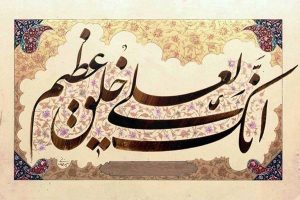 انّک لعلی خلق عظیم